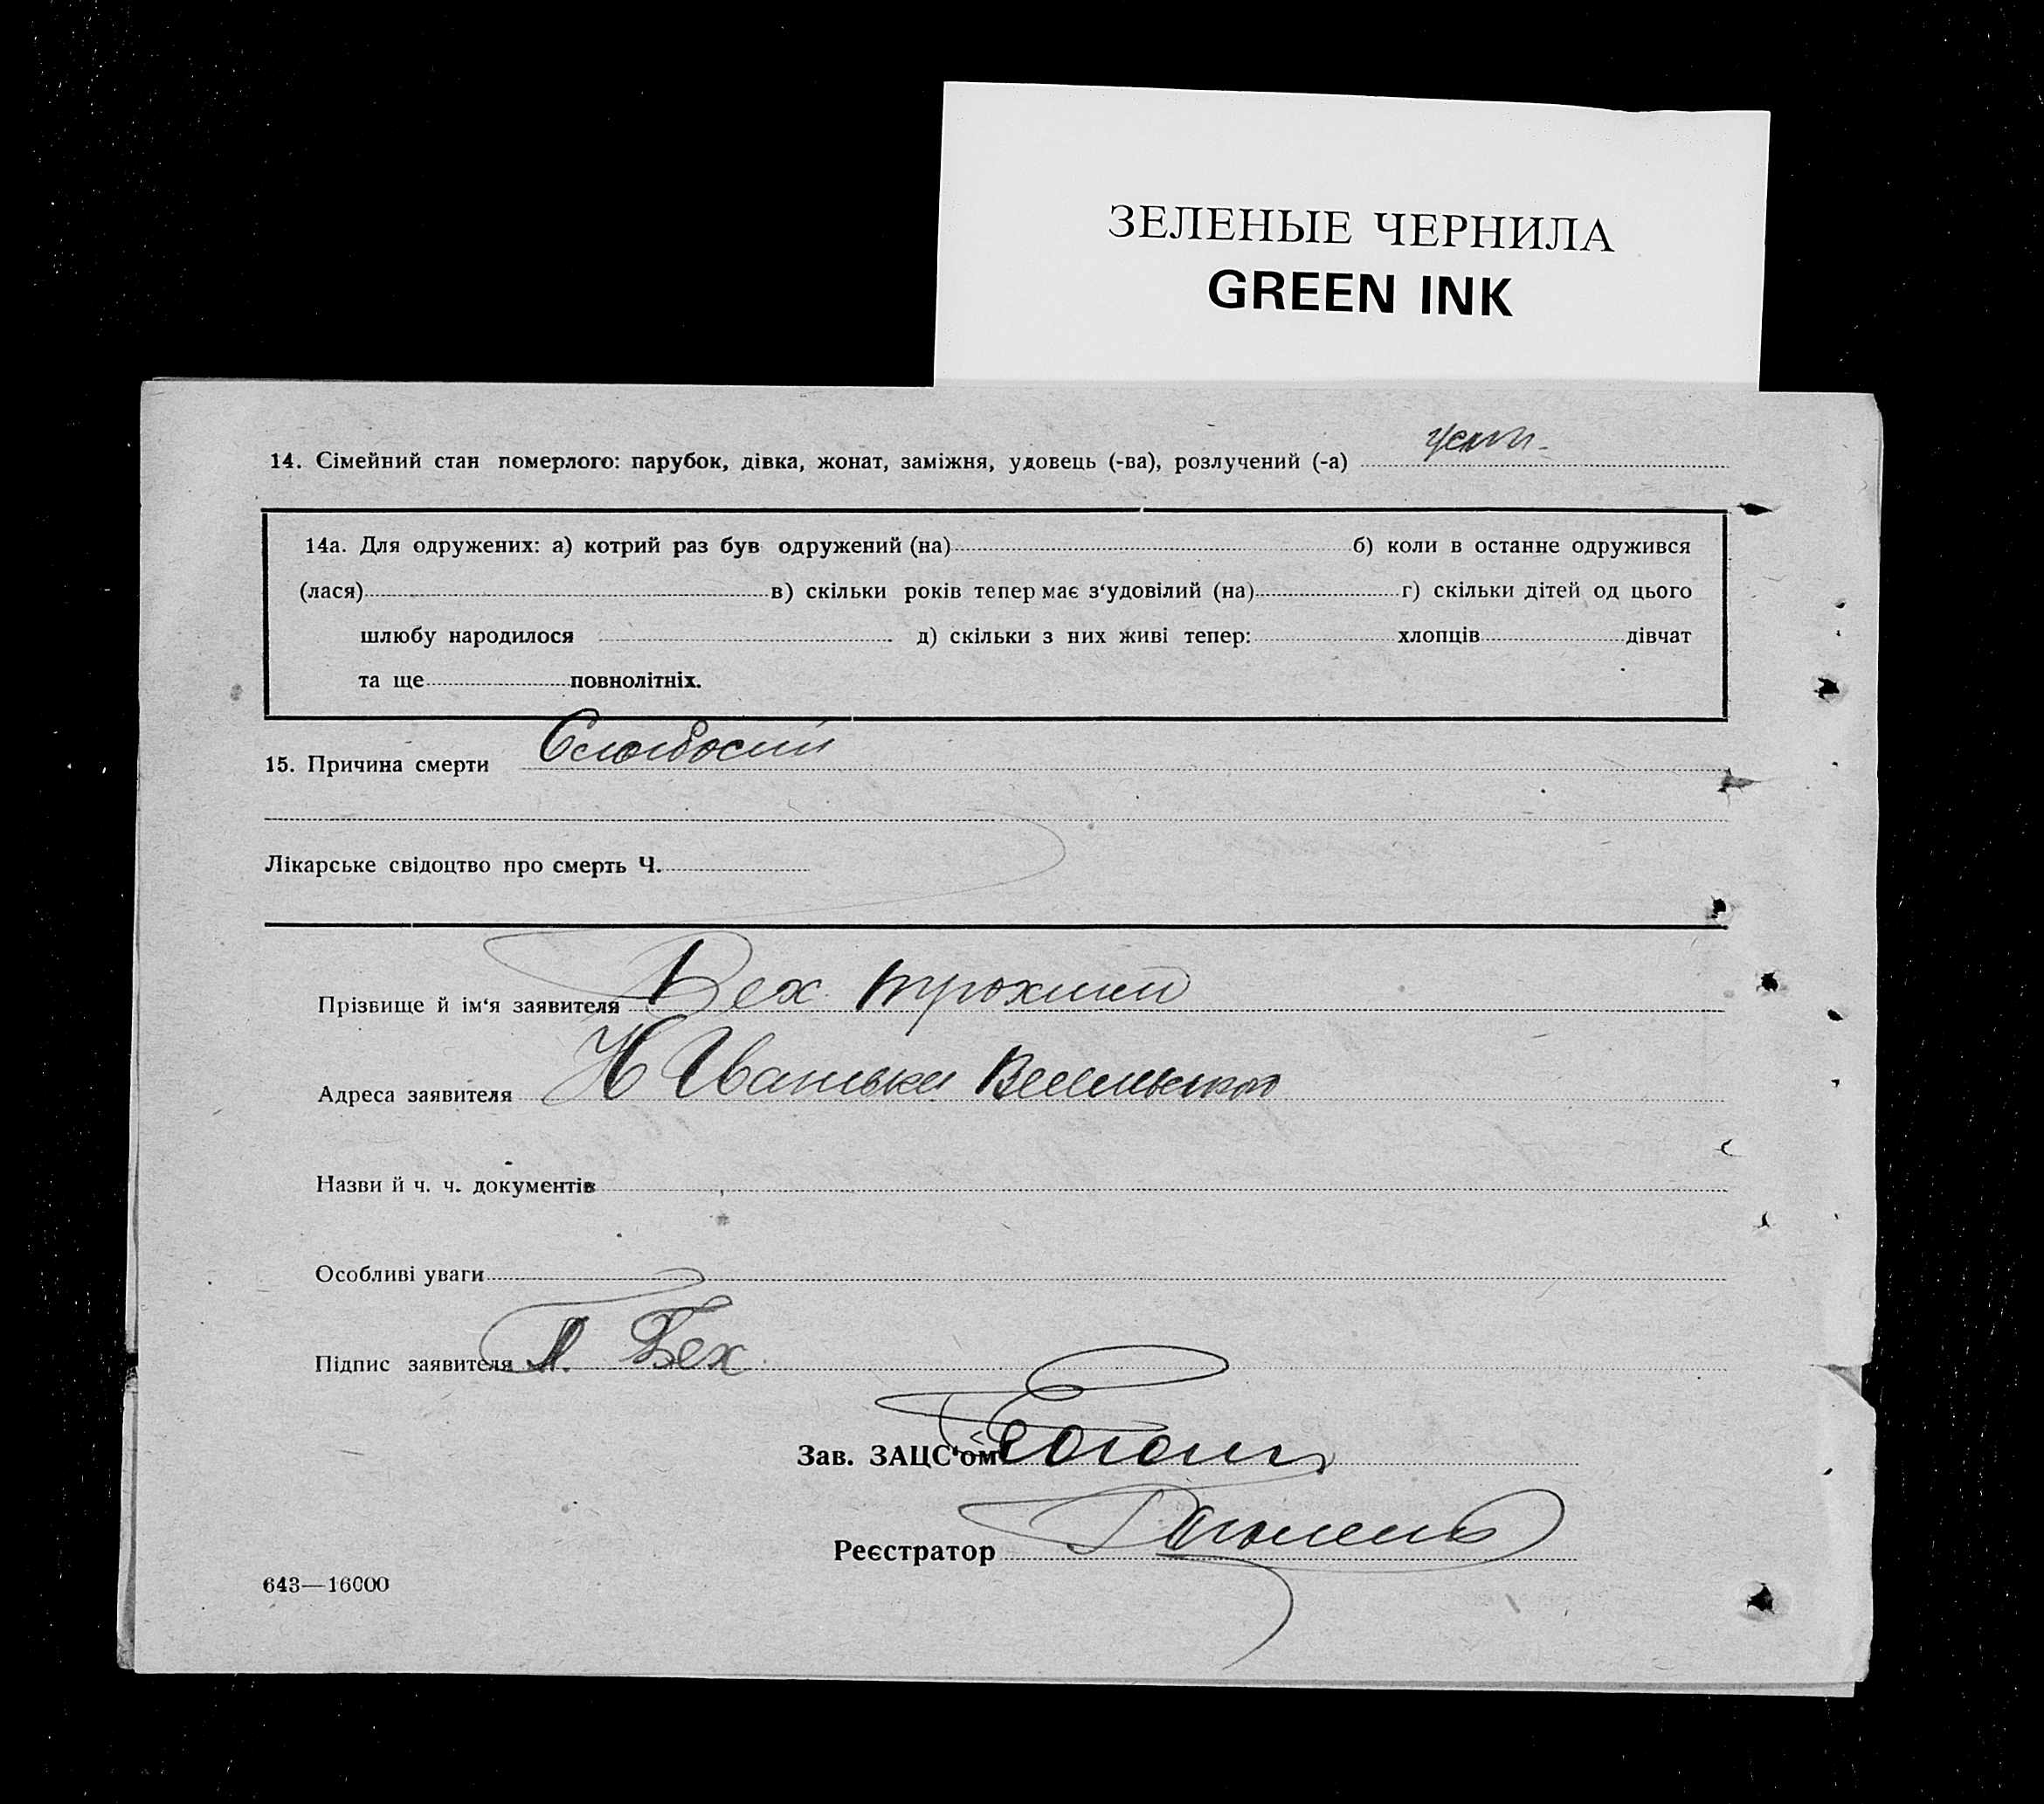 ЗЕЛЕНЫЕ ЧЕРНИЛА
GREEN INK
14. Сімейний стан померлого: парубок, дівка, жонат, заміжня, удовець (-ва), розлучений (-а)
14а. Для одружених: а) котрий раз був одружений (на) б) коли в останнє одружився
(лася) в) скільки років тепер має з'удовілий (на) г) скільки дітей од цього
шлюбу народилося д) скільки з них живі тепер: хлопців дівчат
та ще повнолітніх.
15. Причина смерти
Лікарське свідоцтво про смерть Ч.
Прізвище й ім'я заявителя Бех Трохим
Адреса заявителя Н Іванька
Назви й ч. ч. документів
Особливі уваги
Підпис заявителя Бех
Зав. ЗАЦС'ом
Реєстратор
643—16000